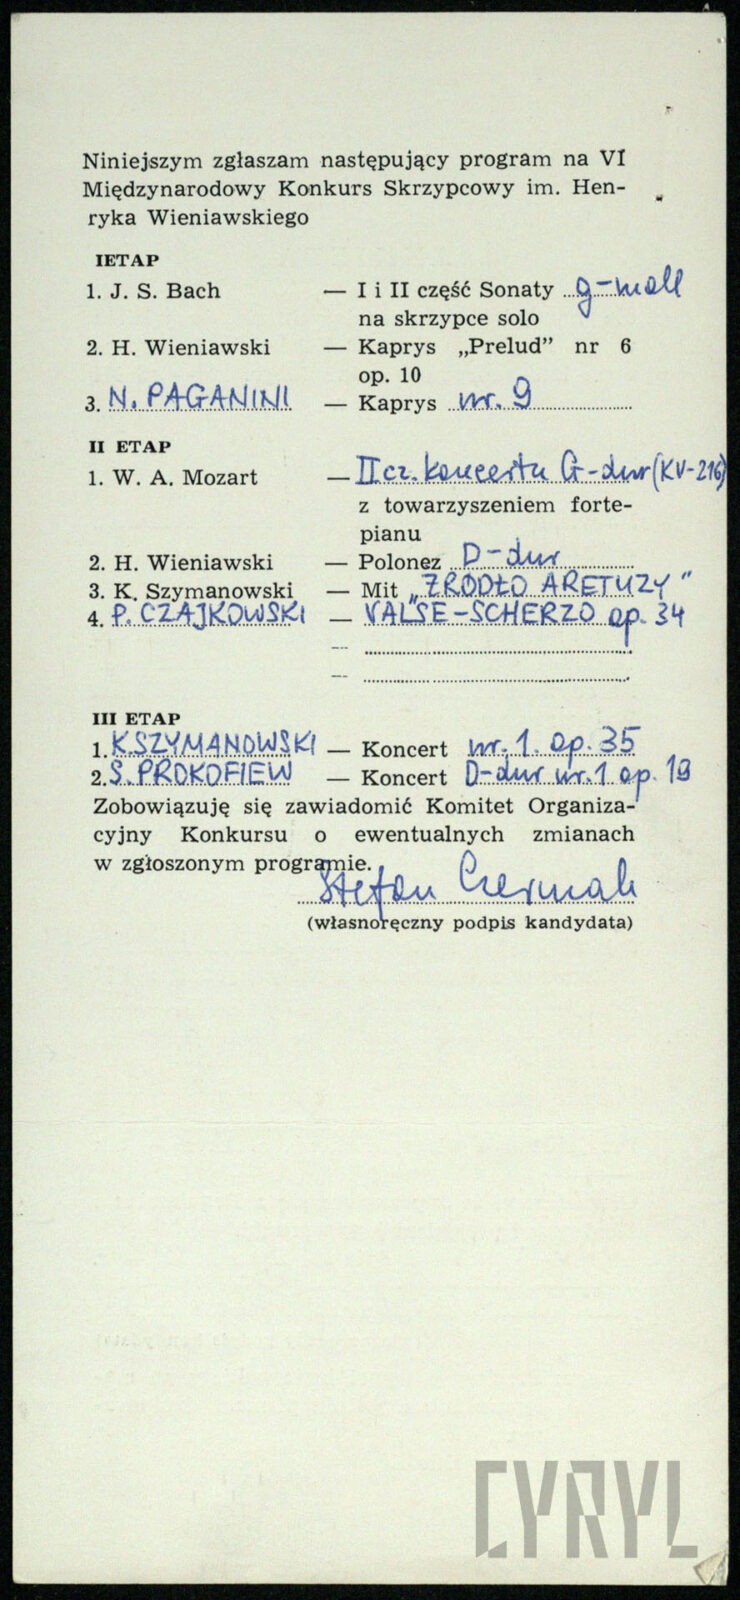 Niniejszym zgłaszam następujący program na VI
Międzynarodowy Konkurs Skrzypcowy im. Hen-
ryka Wieniawskiego
I ETAP
1. J. S. Bach — I i II część Sonaty g-moll
na skrzypce solo
2. H. Wieniawski — Kaprys „Prelud” nr 6
op. 10
3. N. PAGANINI — Kaprys nr. 9
II ETAP
1. W. A. Mozart — II cz. koncertu G-dur (KV-216)
z towarzyszeniem forte-
pianu
2. H. Wieniawski — Polonez D-dur
3. K. Szymanowski — Mit „ŹRÓDŁO ARETUZY”
4. P. CZAJKOWSKI — VALSE-SCHERZO op. 34
—
—
III ETAP
1. K. SZYMANOWSKI — Koncert nr. 1. op. 35
2. S. PROKOFIEW — Koncert D-dur nr. 1 op. 19
Zobowiązuję się zawiadomić Komitet Organiza-
cyjny Konkursu o ewentualnych zmianach
w zgłoszonym programie.
Stefan Czermak
(własnoręczny podpis kandydata)
CYRYL